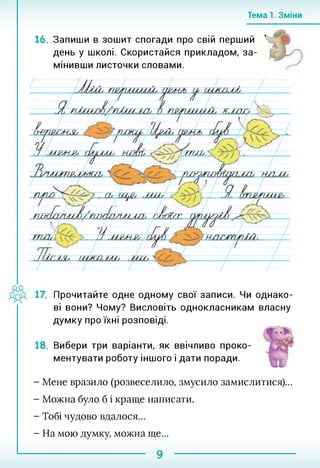 Тема 1. Зміни
16. Запиши в зошит спогади про свій перший
день у школі. Скористайся прикладом, за-
мінивши листочки словами.
Мій перший день у школі
Я пішов/пішла в перший клас
вересня року. Цей день був .
У мене були нові та .
Вчителька розповідала нам
про , а ще ми . Я вперше
побачив/побачила своїх друзів
та . У мене був настрій.
Після школи ми .
17. Прочитайте одне одному свої записи. Чи однако-
ві вони? Чому? Висловіть однокласникам власну
думку про їхні розповіді.
18. Вибери три варіанти, як ввічливо проко-
ментувати роботу іншого і дати поради.
– Мене вразило (розвеселило, змусило замислитися)...
– Можна було б і краще написати.
– Тобі чудово вдалося...
– На мою думку, можна ще...
9